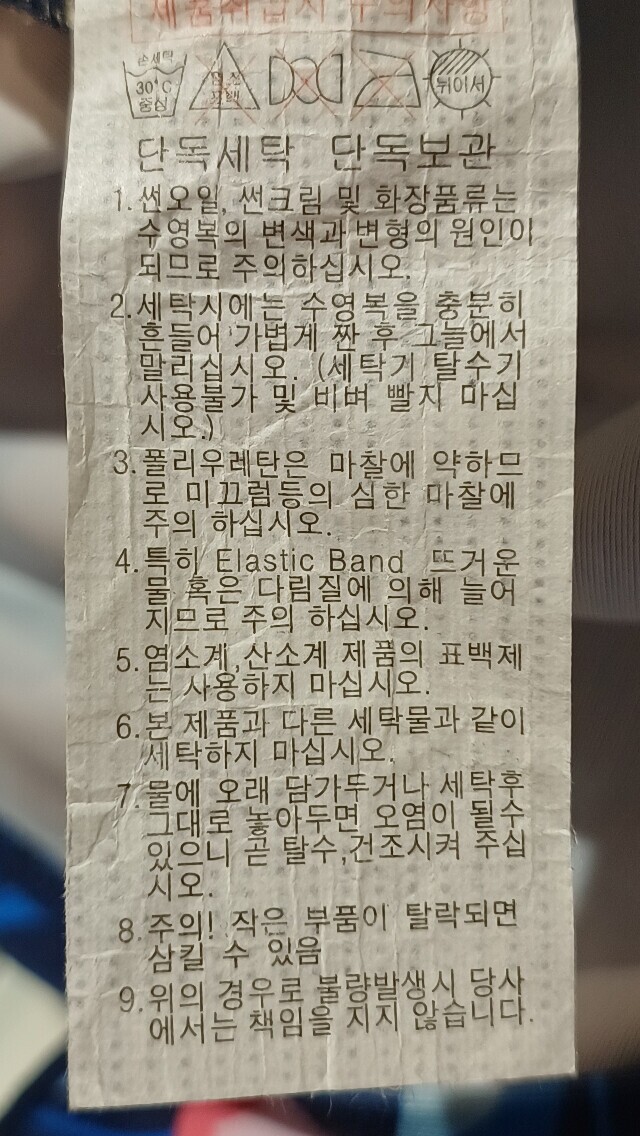 제품취급시 주의사항
손세탁
30°C
중성
염소
표백
뉘어서
단독세탁 단독보관
1. 썬오일, 썬크림 및 화장품류는
수영복의 변색과 변형의 원인이
되므로 주의하십시오.
2. 세탁시에는 수영복을 충분히
흔들어 가볍게 짠 후 그늘에서
말리십시오. (세탁기 탈수기
사용불가 및 비벼 빨지 마십
시오.)
3. 폴리우레탄은 마찰에 약하므
로 미끄럼등의 심한 마찰에
주의 하십시오.
4. 특히 Elastic Band 뜨거운
물 혹은 다림질에 의해 늘어
지므로 주의 하십시오.
5. 염소계,산소계 제품의 표백제
는 사용하지 마십시오.
6. 본 제품과 다른 세탁물과 같이
세탁하지 마십시오.
7. 물에 오래 담가두거나 세탁후
그대로 놓아두면 오염이 될수
있으니 곧 탈수,건조시켜 주십
시오.
8. 주의! 작은 부품이 탈락되면
삼킬 수 있음
9. 위의 경우로 불량발생시 당사
에서는 책임을 지지 않습니다.